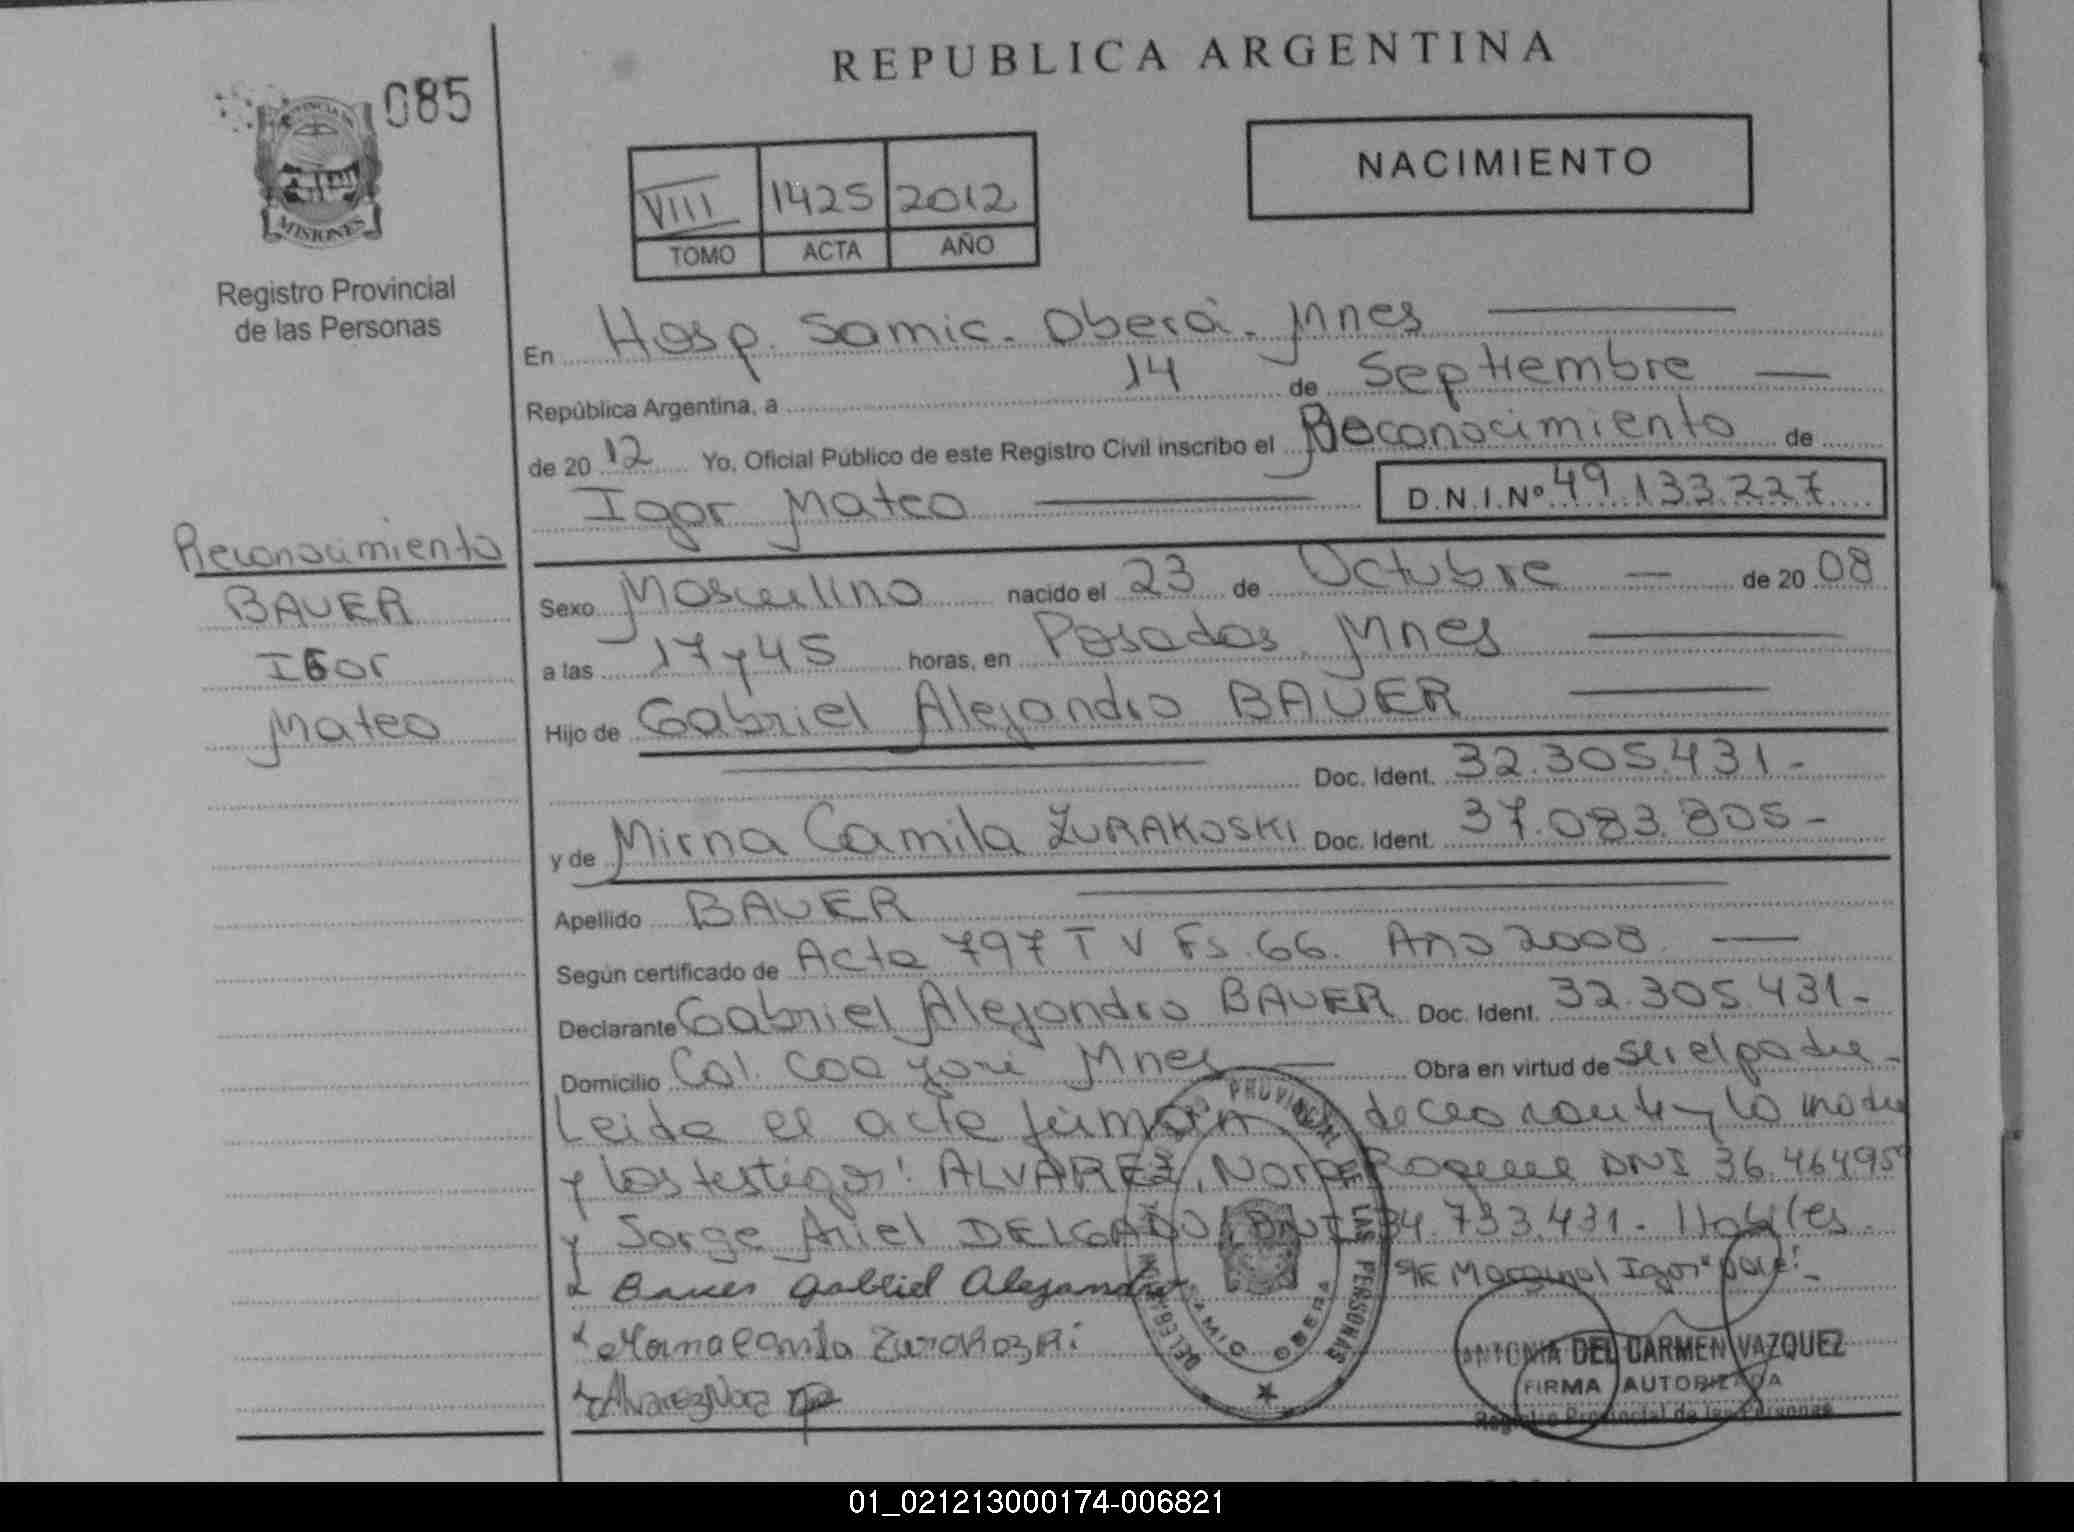 REPUBLICA ARGENTINA
085
NACIMIENTO
VIII 1425 2012
TOMO ACTA AÑO
MISIONES
Registro Provincial
de las Personas
En Hosp. Samic. Oberá. Mnes
República Argentina, a 14 de Septiembre
de 20 12 Yo, Oficial Público de este Registro Civil inscribo el Reconocimiento de
Igor Mateo D.N.I.Nº 49.133.227
Reconocimiento
BAUER
Igor
Mateo
Sexo Masculino nacido el 23 de Octubre de 20 08
a las 17 y 45 horas, en Posadas Mnes
Hijo de Gabriel Alejandro BAUER
Doc. Ident. 32.305.431-
y de Mirna Camila ZURAKOSKI Doc. Ident. 37.083.805-
Apellido BAUER
Según certificado de Acta 797 T V Fs. 66. Año 2008
Declarante Gabriel Alejandro BAUER Doc. Ident. 32.305.431-
Domicilio Col. Mnes Obra en virtud de ser el padre-
Leida el acta firman y la madre
y los testigos: ALVAREZ, DNI 36.46495
y Jorge Ariel DELGADO DNI 34.733.431. Habiles
Bauer Gabriel Alejandro S/E Marginal Igor vale!
PROVINCIAL DE LAS PERSONAS
OBERA
ANTONIA DEL CARMEN VAZQUEZ
FIRMA AUTORIZADA
Registro Provincial de las Personas
01_021213000174-006821